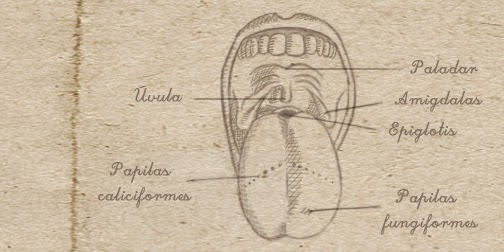 Paladar
Úvula
Amígdalas
Epíglotis
Papilas
caliciformes
Papilas
fungiformes